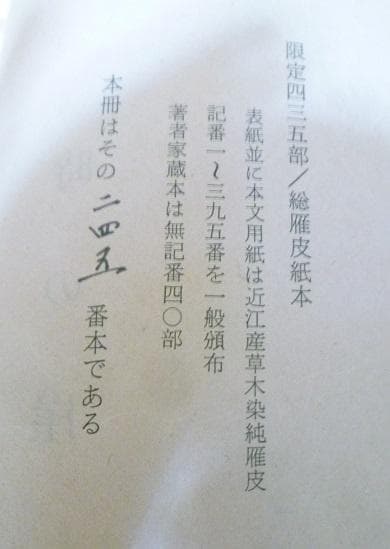 限定四三五部/総雁皮紙本
表紙並に本文用紙は近江産草木染純雁皮
記番一〜三九五番を一般頒布
著者家蔵本は無記番四〇部
本冊はその 二四五 番本である